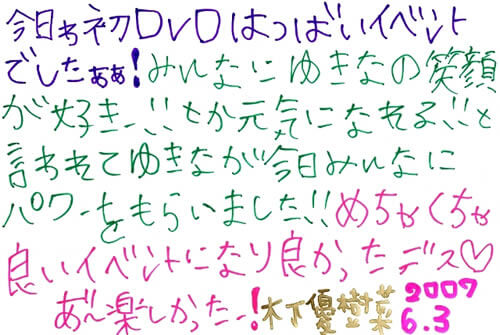 今日ゎ初DVDはつばいイベント
でしたぁぁ!みんなにゆきなの笑顔
が好き…!!とか元気になれる!!と
言われてゆきなが今日みんなに
パワーをもらいました!!めちゃくちゃ
良いイベントになり良かったデス♡
あ〜楽しかったー!木下優樹菜 2007
6.3